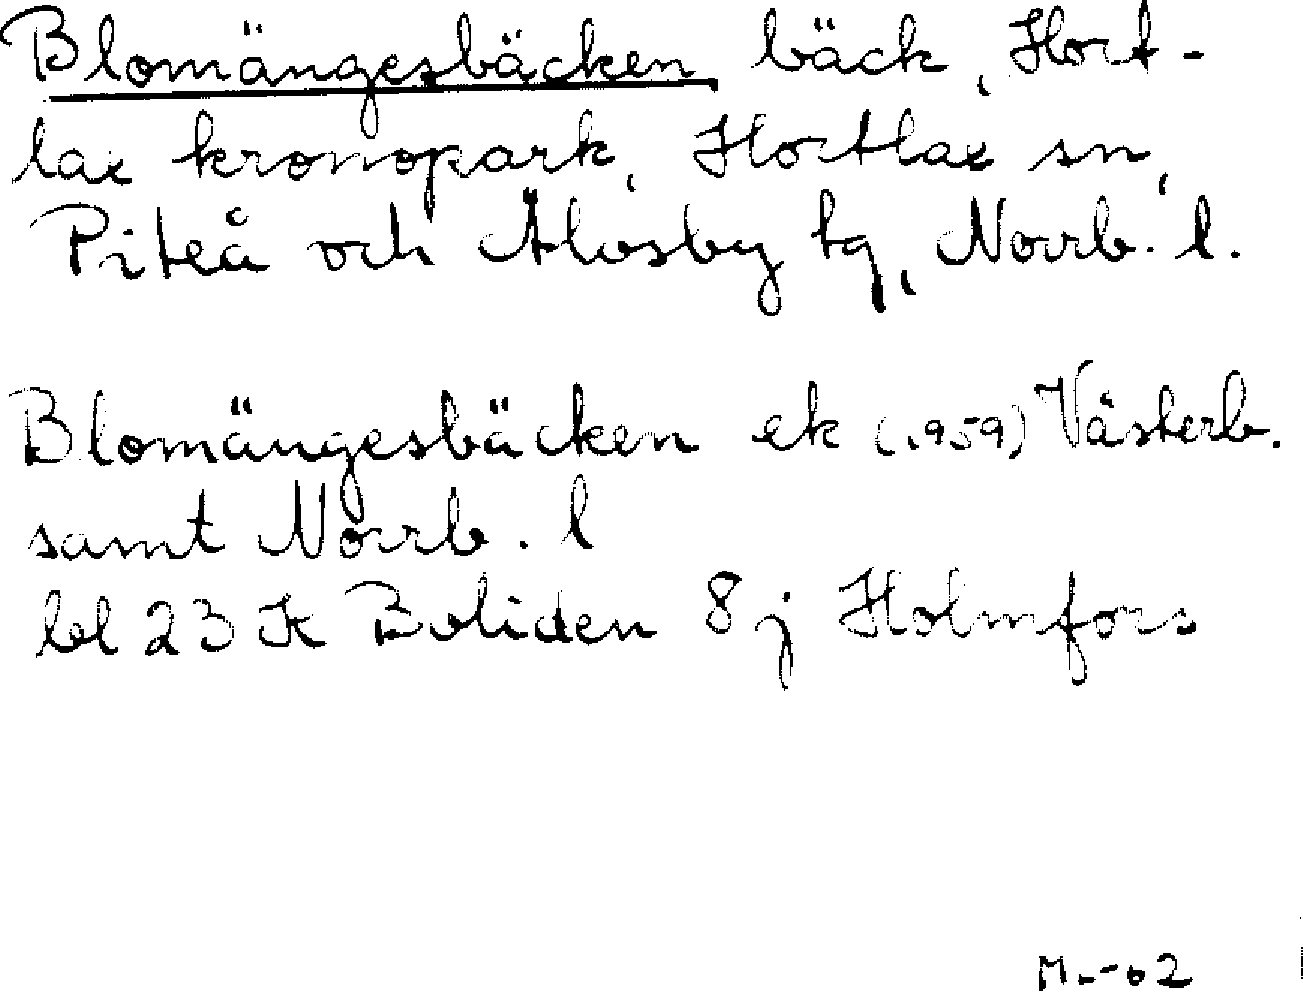 Blomängesbäcken bäck, Hort-
lax kronopark, Hortlax sn,
Piteå och Älvsby tg, Norrb. l.
Blomängesbäcken ek (1959) Västerb.
samt Norrb. l
bl 23 K Boliden 8 j Holmfors